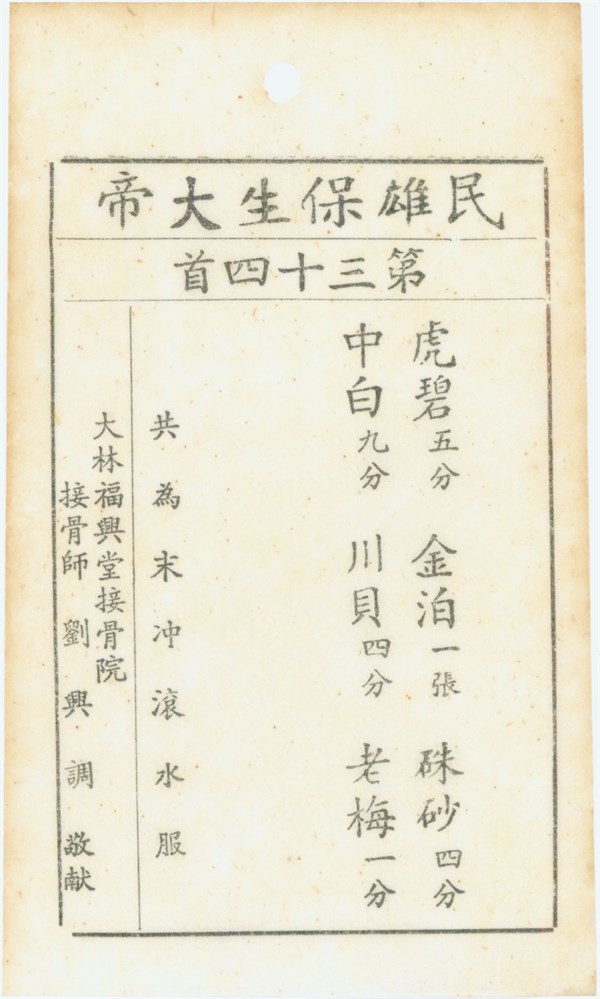 民雄保生大帝
第三十四首
虎碧五分 金泊一張 硃砂四分
中白九分 川貝四分 老梅一分
共為末冲滾水服
大林福興堂接骨院
接骨師 劉興調 敬献